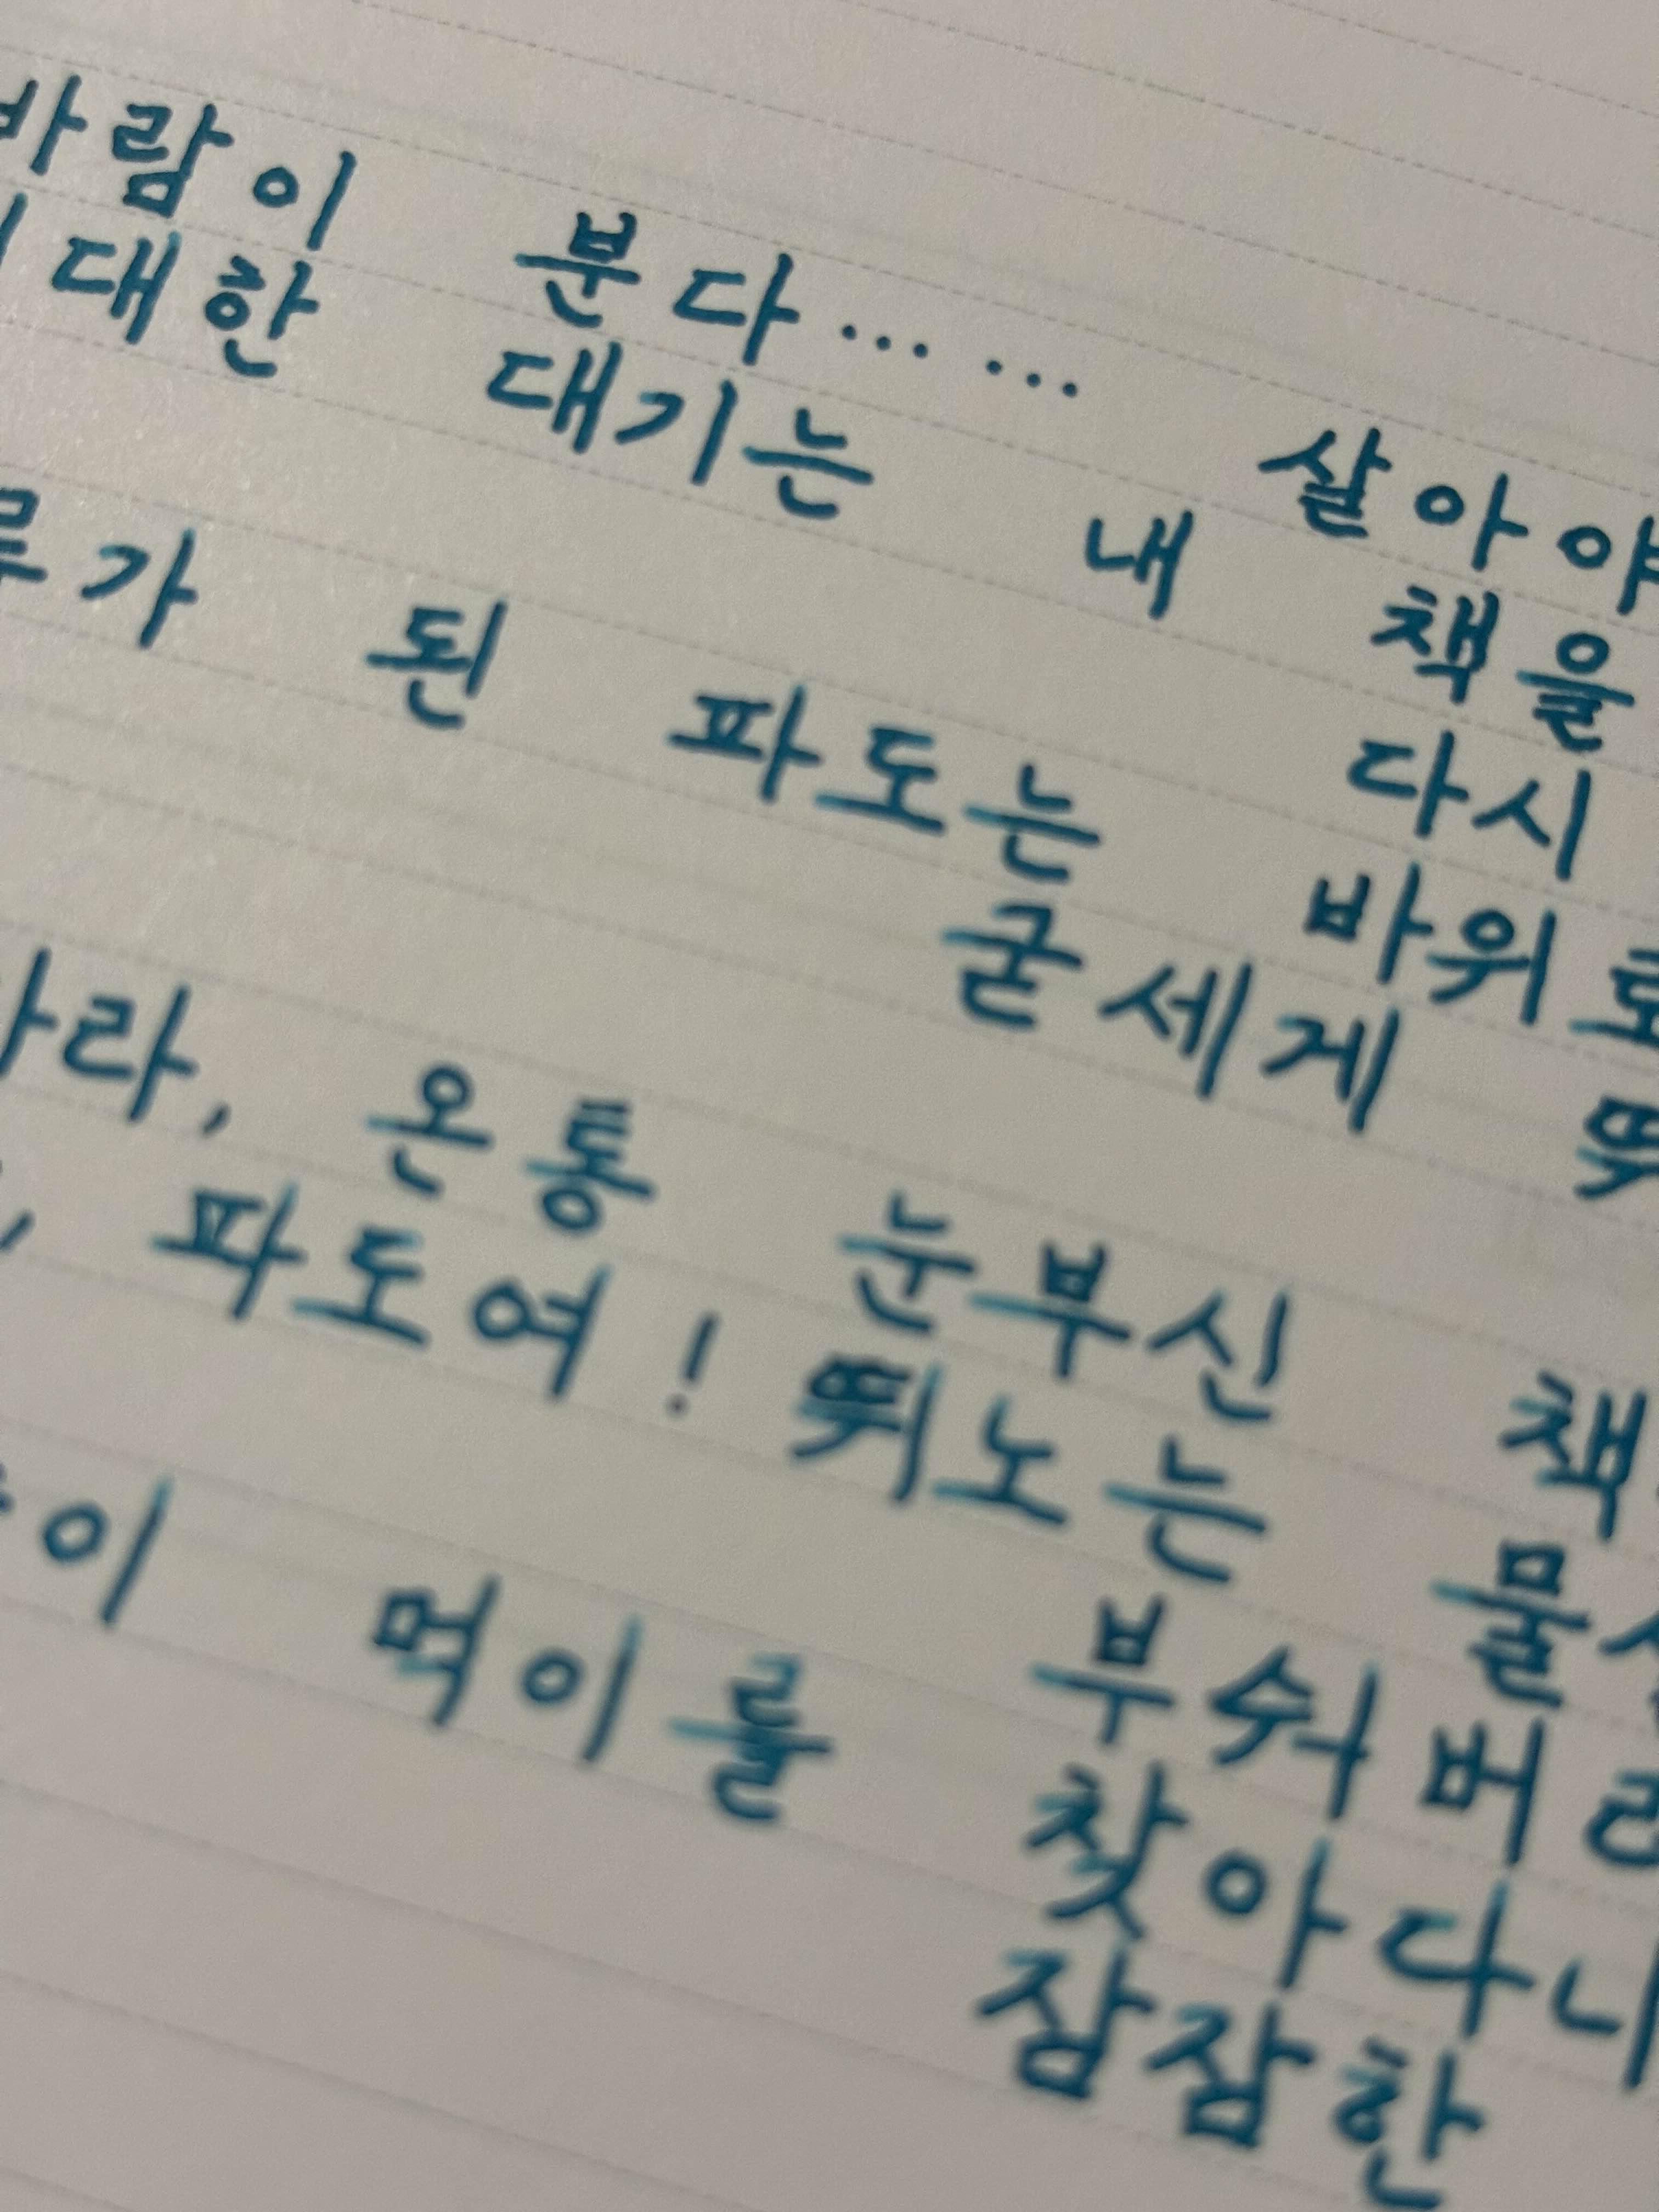 바람이 분다…… 살아야
대한 대기는 내 책을
다시
루가 된 파도는 바위로
굳세게
라, 온통 눈부신 책
, 파도여! 뛰노는 물
부숴버
이 먹이를 찾아다니
잠잠한